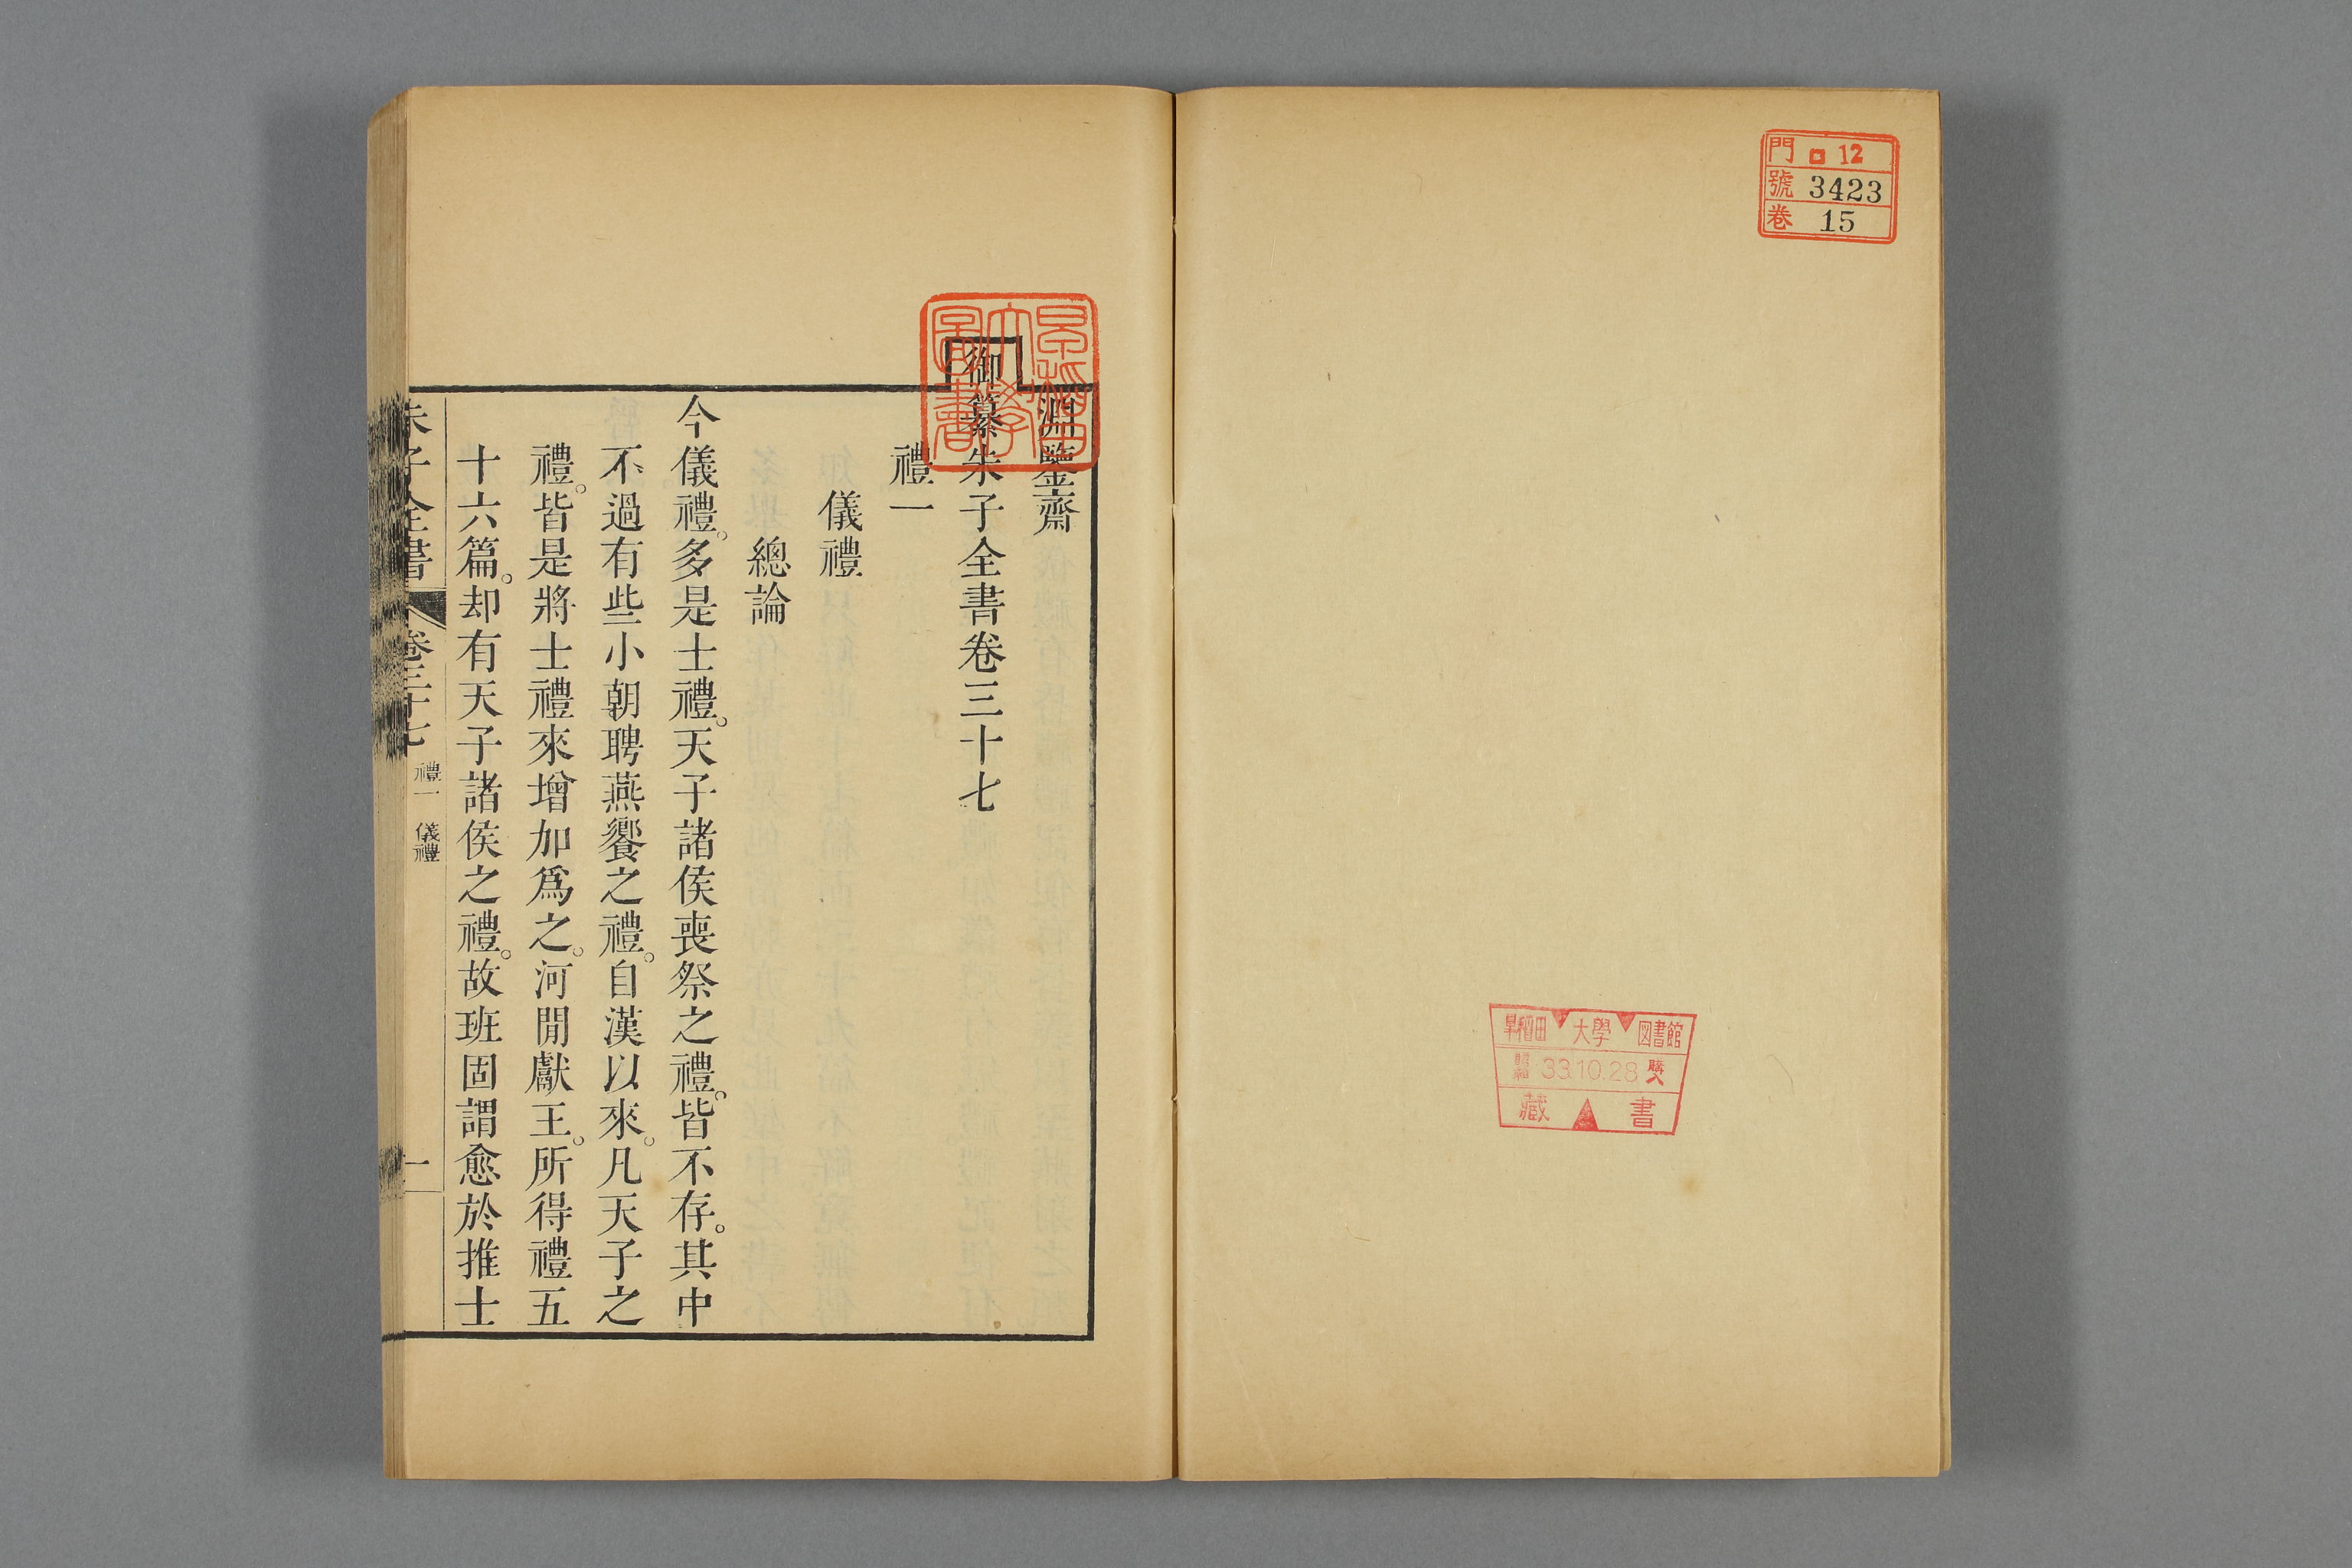 門 ロ 12
號 3423
卷 15
早稲田 大學 図書館
昭和 33.10.28 購入
藏書
早稲田大學圖書
淵鑒齋
御纂朱子全書卷三十七
禮一
儀禮
總論
今儀禮。多是士禮。天子諸侯喪祭之禮。皆不存。其中
不過有些小朝聘燕饗之禮。自漢以來。凡天子之
禮。皆是將士禮來增加爲之。河閒獻王。所得禮五
十六篇。却有天子諸侯之禮。故班固謂愈於推士
朱子全書 卷三十七 禮一 儀禮 一